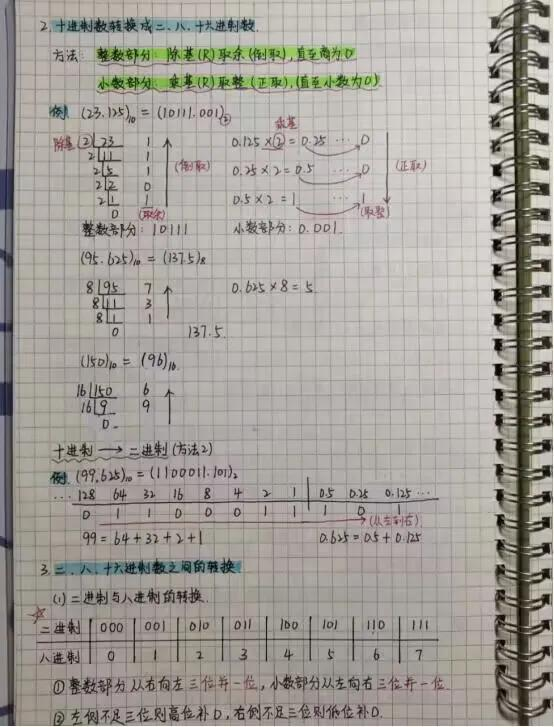 2. 十进制数转换成二、八、十六进制数.
方法: 整数部分: 除基(R)取余(倒取), 直至商为0
小数部分: 乘基(R)取整(正取), (直至小数为0)
例. (23.125)₁₀ = (10111.001)②
乘基
除基 ② 23 1 0.125 × ② = 0.25 … 0
2 11 1
2 5 1 (倒取) 0.25 × 2 = 0.5 … 0 (正取)
2 2 0
2 1 1 0.5 × 2 = 1 1
0 (取余) (取整)
整数部分: 10111 小数部分: 0.001.
(95.625)₁₀ = (137.5)₈
8 95 7 0.625 × 8 = 5.
8 11 3
8 1 1
0 137.5.
(150)₁₀ = (96)₁₆.
16 150 6
16 9 9
0
十进制 → 二进制 (方法2)
例. (99.625)₁₀ = (1100011.101)₂
… 128 64 32 16 8 4 2 1 0.5 0.25 0.125 …
0 1 1 0 0 0 1 1 1 0 1
(从左到右)
99 = 64 + 32 + 2 + 1 0.625 = 0.5 + 0.125
3. 二、八、十六进制数之间的转换
(1) 二进制与八进制的转换.
☆
二进制 000 001 010 011 100 101 110 111
八进制 0 1 2 3 4 5 6 7
① 整数部分从右向左三位并一位, 小数部分从左向右三位并一位.
② 左侧不足三位则高位补0, 右侧不足三位则低位补0.